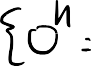 {0ⁿ =